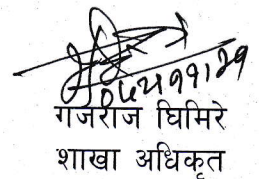 गजराज घिमिरे
शाखा अधिकृत